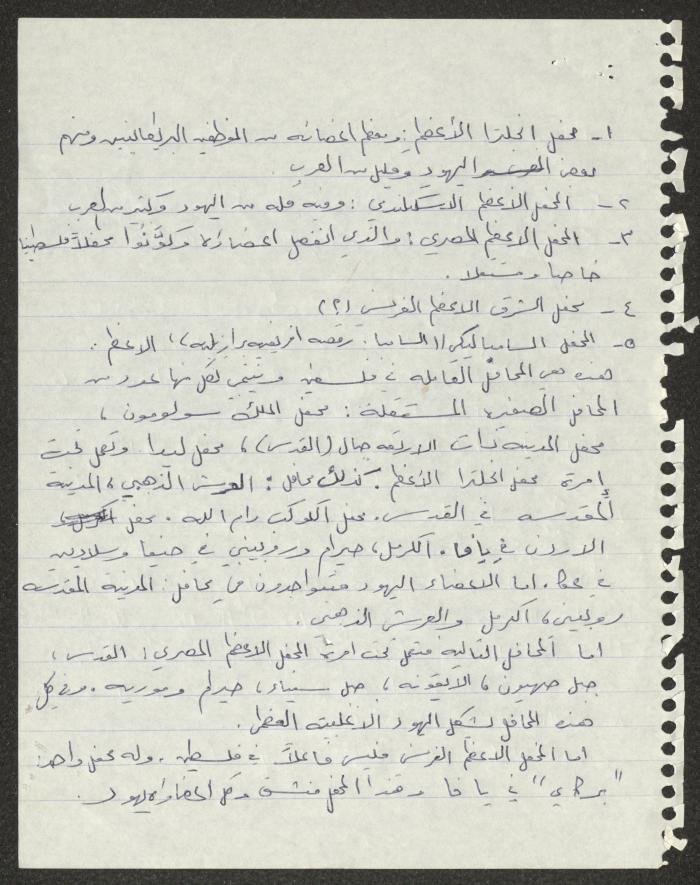 ١- محفل انجلترا الأعظم: ومعظم اعضائه من الموظفين البريطانيين ومنهم
بعض اليهود وقليل من العرب
٢- المحفل الأعظم الاسكتلندي: وفيه قلة من اليهود وكثير من العرب
٣- المحفل الاعظم المصري: والذي انفصل اعضاؤه وكوَّنُوا محفلاً فلسطينيا
خاصا ومستقلا.
٤- محفل الشرق الاعظم الفرنسي (؟)
٥- المحفل السامباليكي ((السامبا: رقصه افريقيه برازيليه)) الاعظم.
هذه هي المحافل العامله في فلسطين وينتمي لكل منها عدد من
المحافل الصغيره المستقلة: محفل الملك سولومون،
محفل المدينه ذات الاربعة جبال (القدس)، محفل ليدا وتعمل تحت
إمرة محفل انجلترا الأعظم. كذلك محافل: العرش الذهبي، المدينة
المقدسه في القدس. محفل الكوكب رام الله. محفل
الاردن في يافا. الكرمل، حيرام وروبيني في حيفا وسلاديين
في عكا. اما الاعضاء اليهود متواجدون في محافل: المدينه المقدسه
روبيني، الكرمل والعرش الذهبي.
اما المحافل التاليه فتعمل تحت امرة المحفل الاعظم المصري: القدس،
جبل صهيون، الايقونه، جبل سيناء، حيرام وموريه. وفي كل
هذه المحافل يشكل اليهود الاغلبية العظمى.
اما المحفل الاعظم الفرنسي فليس فاعلاً في فلسطين. وله محفل واحد:
"بركاي" في يافا وهذا المحفل منشق وكل اعضاؤه يهود.